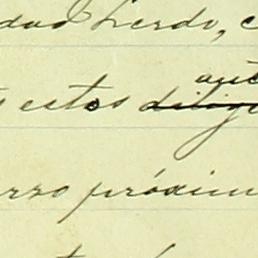 dad Lerdo, c
aut
s estos dilige
rro próxim